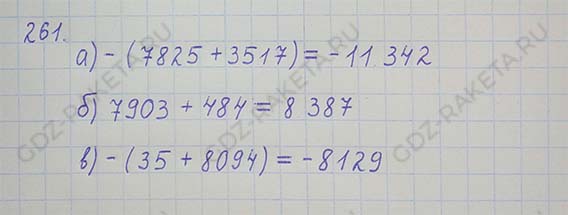 261.
а) - (7825 + 3517) = -11 342
б) 7903 + 484 = 8 387
в) - (35 + 8094) = -8129
GDZ-RAKETA.RU
GDZ-RAKETA.RU
GDZ-RAKETA.RU
GDZ-RAKETA.RU